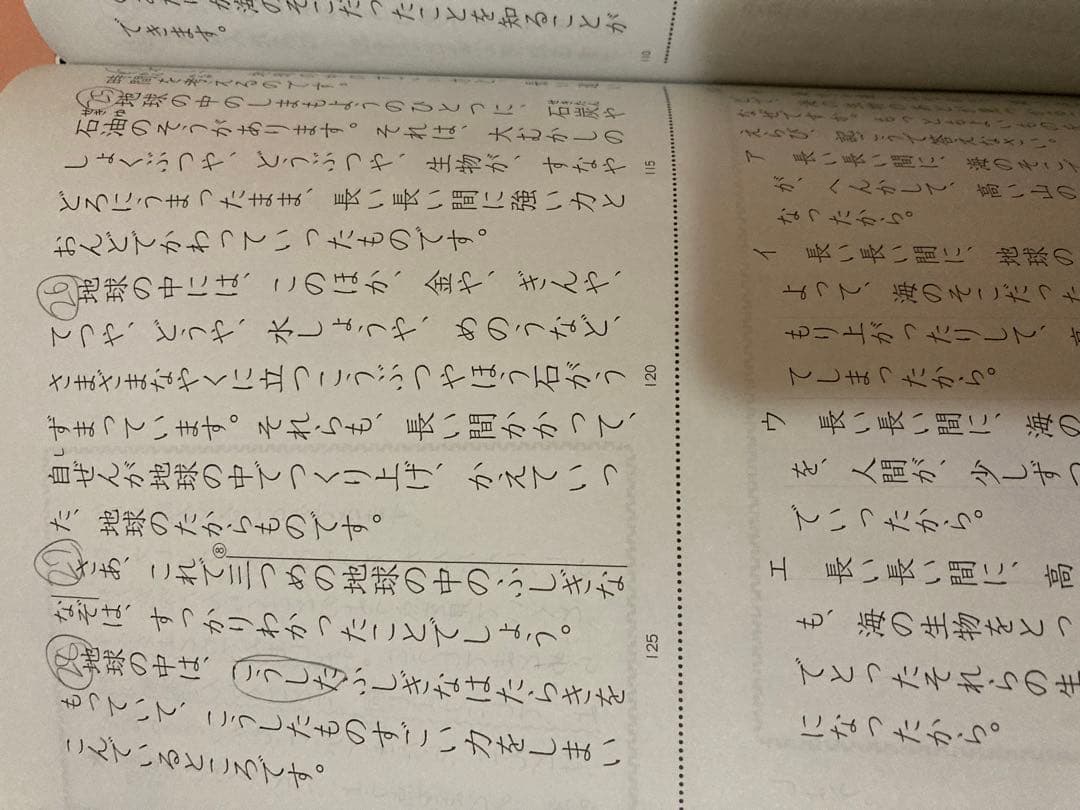 海のそこだったことを知ることが
できます。
110
25
地球の中のしまもようのひとつに、石炭や
石油のそうがあります。それは、大むかしの
しょくぶつや、どうぶつや、生物が、すなや
115
どろにうまったまま、長い長い間に強い力と
おんどでかわっていったものです。
26
地球の中には、このほか、金や、ぎんや、
てつや、どうや、水しょうや、めのうなど、
さまざまなやくに立つこうぶつやほう石がう
120
ずまっています。それらも、長い間かかって、
自ぜんが地球の中でつくり上げ、かえていっ
た、地球のたからものです。
27
さあ、これで⑧三つめの地球の中のふしぎな
なぞは、すっかりわかったことでしょう。
125
28
地球の中は、こうしたふしぎなはたらきを
もっていて、こうしたものすごい力をしまい
こんでいるところです。
ア 長い長い間に、海のそこ
が、へんかして、高い山の
なったから。
イ 長い長い間に、地球の
よって、海のそこだった
もり上がったりして、高
てしまったから。
ウ 長い長い間に、海の
を、人間が、少しずつ
でいったから。
エ 長い長い間に、高
も、海の生物をとっ
でとったそれらの生
になったから。